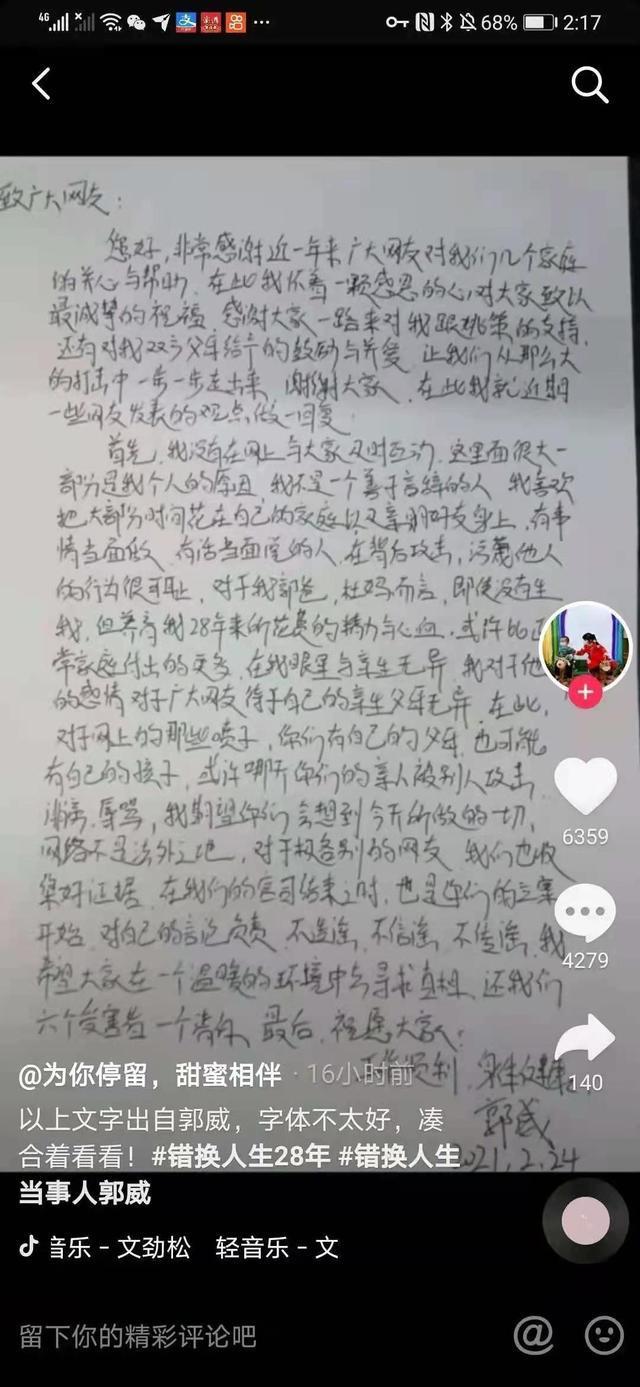 4G
68%
2:17
致广大网友：
您好，非常感谢近一年来广大网友对我们几个家庭
的关心与帮助，在此我怀着一颗感恩的心，对大家致以
最诚挚的祝福，感谢大家一路来对我跟姚策的支持，
还有对我双方父母给予的鼓励与关爱，让我们从那么大
的打击中一步一步走出来，谢谢大家，在此我就近期
一些网友发表的观点做一回复
首先，我没有在网上与大家及时互动，这里面很大一
部分是我个人的原因，我不是一个善于言辞的人，我喜欢
把大部分时间花在自己的家庭以及亲朋好友身上，有事
情当面做，有话当面说的人，在背后攻击，污蔑他人
的行为很可耻，对于我郭爸，杜妈而言，即使没有生
我，但养育我28年来所花费的精力与心血，或许比正
常家庭付出的更多，在我眼里与亲生无异，我对于他
的感情对于广大网友待于自己的亲生父母无异，在此，
对于网上的那些喷子，你们有自己的父母，也可能
有自己的孩子，或许哪天你们的亲人被别人攻击
辱骂，我期望你们会想到今天所做的一切，
网络不是法外之地，对于极各别的网友，我们也收
集好证据，在我们的官司结束之时，也是你们的立案
开始，对自己的言论负责，不造谣，不信谣，不传谣，我
希望大家在一个温暖的环境中去寻求真相，还我们
六个受害者一个清白，最后，祝愿大家：
郭威
2021.2.24
6359
4279
140
@为你停留，甜蜜相伴 · 16小时前
以上文字出自郭威，字体不太好，凑
合着看看！#错换人生28年 #错换人生
当事人郭威
音乐 - 文劲松 轻音乐 - 文
留下你的精彩评论吧